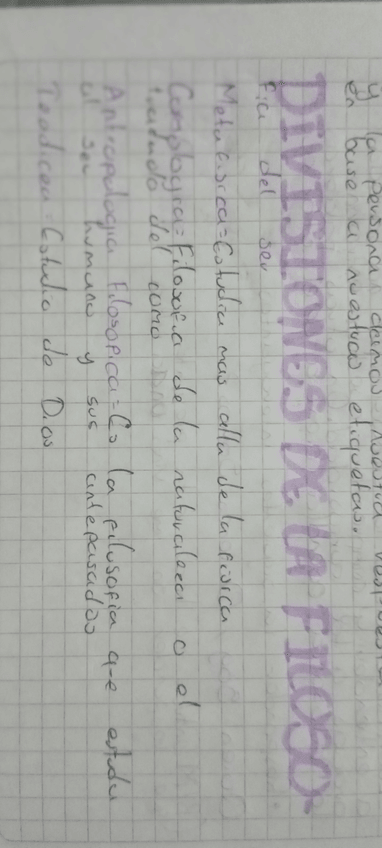 y la persona damos nuestra
en base a nuestras etiquetas.
DIVISIONES DE LA FILOSO-
fia del ser
Metafisica = Estudia mas alla de la fisica
Filosofia de la naturaleza o el
tratado del como
Antropologia Filosofica = Es la filosofia que estudia
al ser humano y sus antepasados
Teodicea = Estudio de Dios